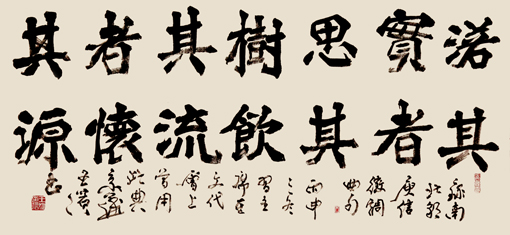 落其
實者
思其
樹飲
其流
者懷
其源
録南
北朝
庾信
徵調
曲句
丙申
之冬
習主
席在
文代
會上
曾用
此典